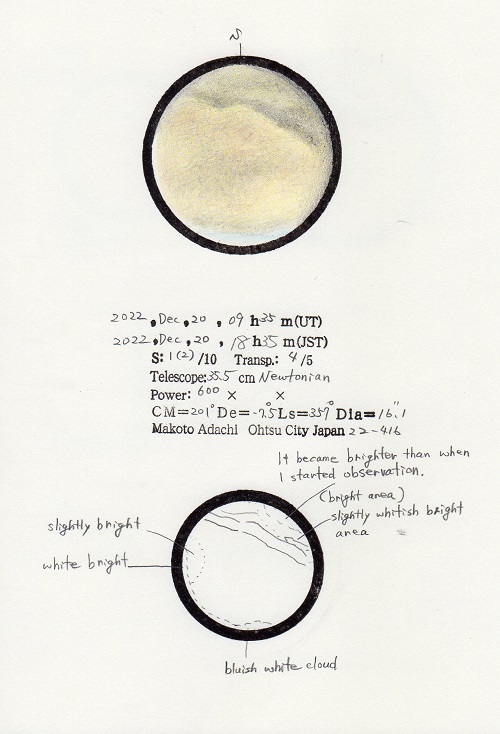 S
2022, Dec, 20, 09 h 35 m (UT)
2022, Dec, 20, 18 h 35 m (JST)
S: 1(2) /10 Transp.: 4 /5
Telescope: 35.5 cm Newtonian
Power: 600 × ×
CM=201° De=-7.5° Ls=357° Dia=16".1
Makoto Adachi Ohtsu City Japan 22-416
It became brighter than when
I started observation.
(bright area)
slightly whitish bright
area
slightly bright
white bright
bluish white cloud